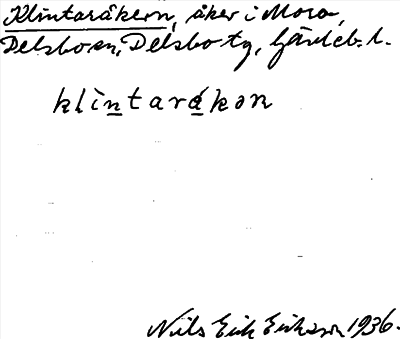 Klintaråkern, åker i Mora,
Delsbo sn, Delsbo tg, Gävleb. l.
klintaråkən
Nils Erik Eriksson 1936.